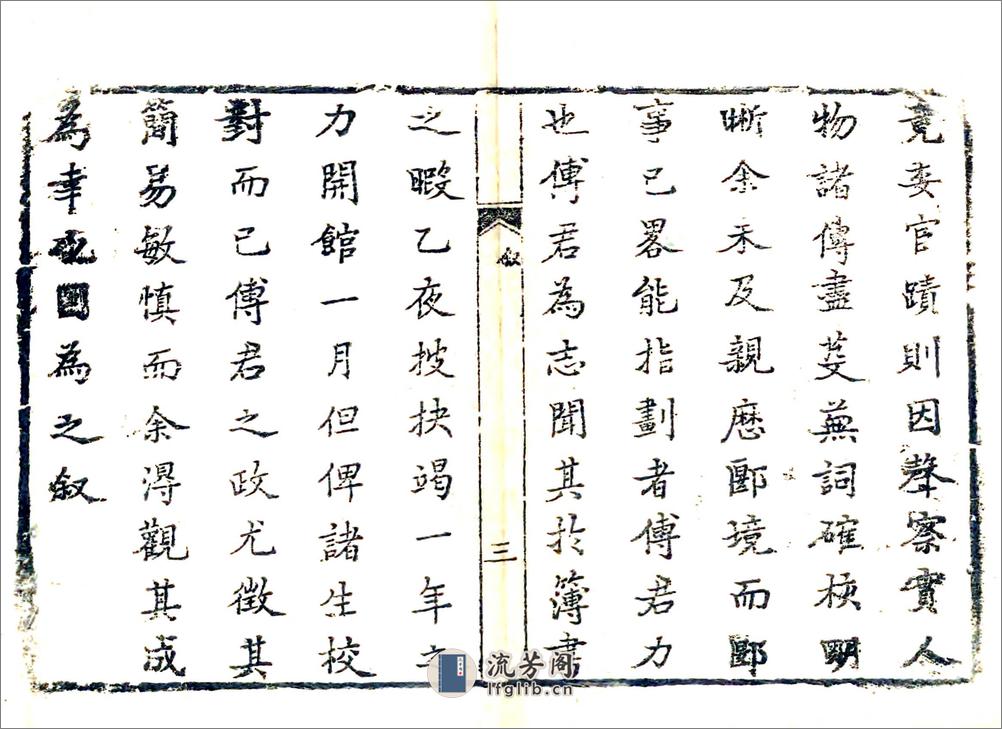 竟委官蹟則因聲察實人
物諸傳盡芟蕪詞確核明
晰余未及親歷郾境而郾
事已畧能指劃者傅君力
也傅君為志聞其於簿書
叙
三
之暇乙夜披抉竭一年之
力開館一月但俾諸生校
對而已傅君之政尤徵其
簡易敏慎而余得觀其成
為幸也因為之叙
流芳阁
lfglib.cn